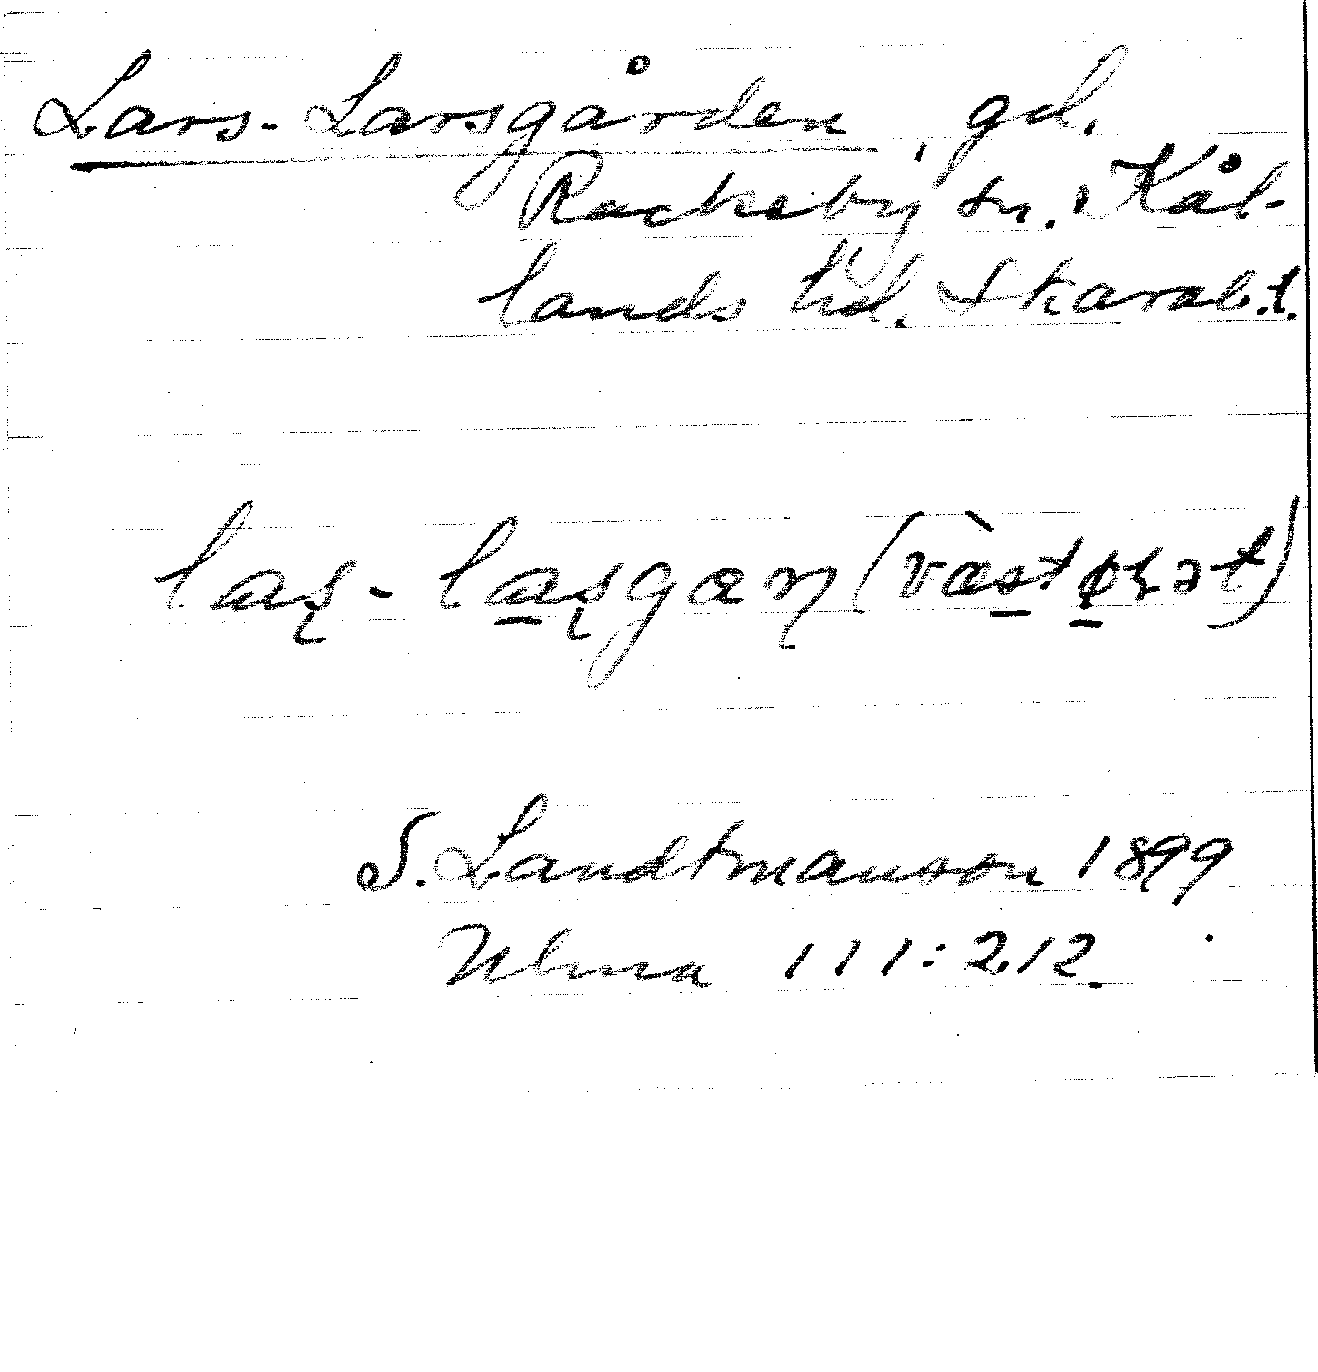 Lars-Larsgården, gd.
Rackeby sn. Kål-
lands hd. Skarab.l.
laʂ-laʂgaɳ (væst
S. Landtmanson 1899
Ulma 111:2.12.